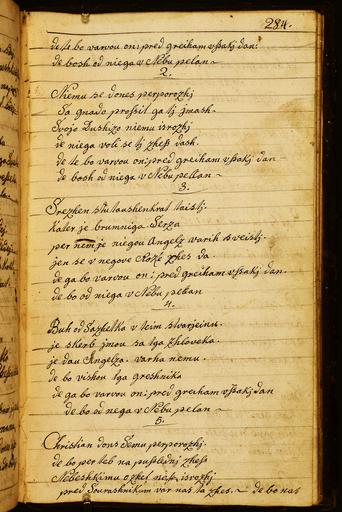 284.
de te bo varvou on: pred greiham vssakj dan:
de bosh od niega v Nebu pelan ~
2.
Niemu se dones perporozhj
Sa gnado prossil ga tj jmash.
Svojo Dushizo niemu isrozhj
de niega voli se tj zhess dash.
de te bo varvou on: pred greiham vssakj dan ~
de bosh od niega v Nebu pellan ~
3.
Srezhen stu taushenkrat taistj.
Kater je brumniga Serza
per nem je niegou Angelz varih sveistj.
jen se v negove Roke zhes da
de ga bo varvou on: pred greiham vssakj dan.
de bo od niega v Nebu pelan
4.
Buh od Sazhetka v teim stvarjeinu.
je skerb jmou sa tga zhloveka.
je dau Angelza. varha nemu.
de bo vishou tga greshnika
de ga bo varvou on: pred greiham vssakj dan
de bo od nega v Nebu pelan ~
5.
Christian dons Semu perporozhj.
de bo per teb na puslednj zhess
Nebeshkimu ozhet nass isrozhj
pred Sourashnikam var nas ta zhes. ~ de bo nas